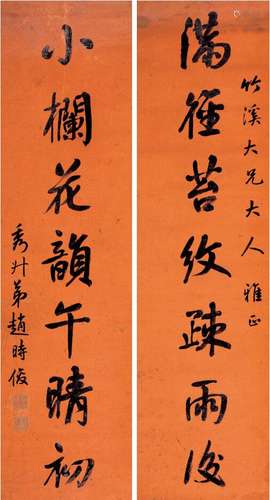 竹溪大兄大人 雅正
满径苔纹疎雨後
小欄花韻午晴初
秀升弟趙時俊